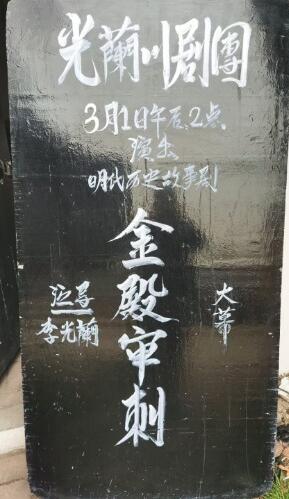 光蘭川剧團
3月1日午后2点
演出
明代历史故事剧
金殿审刺
大幕
导
李光蘭